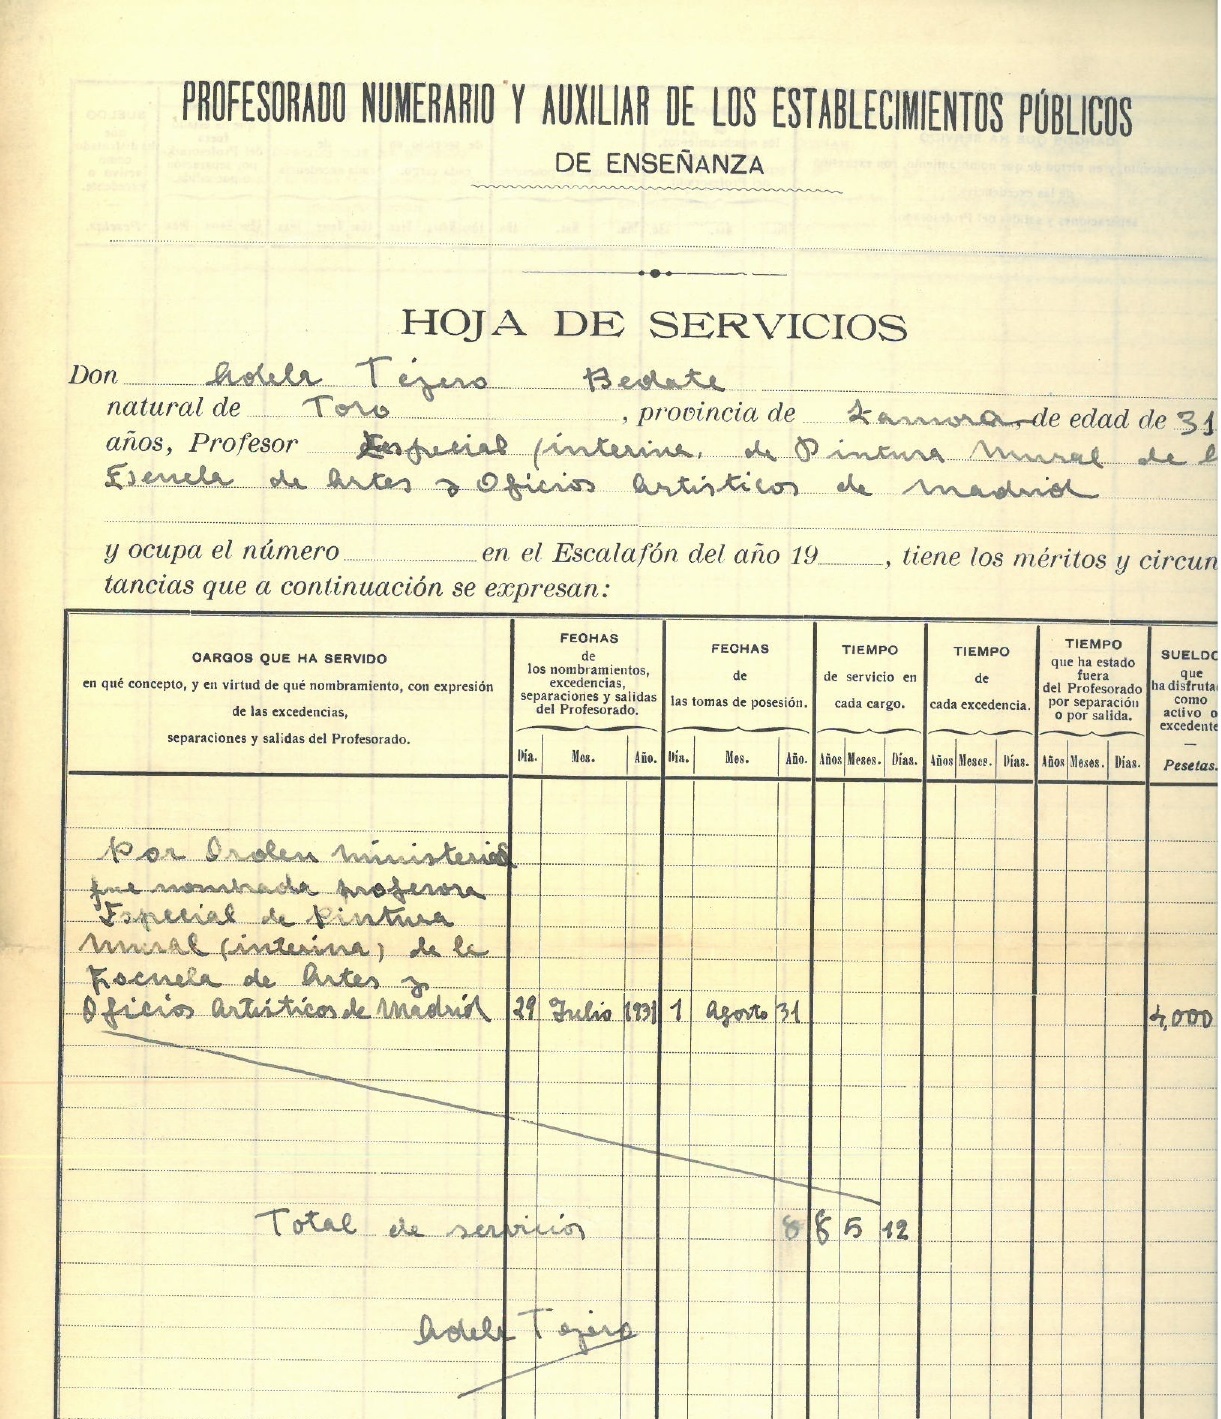 PROFESORADO NUMERARIO Y AUXILIAR DE LOS ESTABLECIMIENTOS PÚBLICOS
DE ENSEÑANZA
HOJA DE SERVICIOS
Don Adela Tejero Bedate
natural de Toro , provincia de Zamora, de edad de 31
años, Profesor Especial (interina, de Pintura Mural de l
Escuela de Artes y Oficios Artísticos de Madrid
y ocupa el número en el Escalafón del año 19 , tiene los méritos y circun
tancias que a continuación se expresan:
CARGOS QUE HA SERVIDO
en qué concepto, y en virtud de qué nombramiento, con expresión
de las excedencias,
separaciones y salidas del Profesorado.
FECHAS
de
los nombramientos,
excedencias,
separaciones y salidas
del Profesorado.
Día. Mes. Año.
FECHAS
de
las tomas de posesión.
Día. Mes. Año.
TIEMPO
de servicio en
cada cargo.
Años Meses. Días.
TIEMPO
de
cada excedencia.
Años Meses. Días.
TIEMPO
que ha estado
fuera
del Profesorado
por separación
o por salida.
Años Meses. Días.
SUELDO
que
ha disfruta
como
activo o
excedente
—
Pesetas.
Por Orden Ministerial
fue nombrada profesora
Especial de Pintura
Mural (interina) de la
Escuela de Artes y
Oficios Artísticos de Madrid 29 Julio 1931 1 Agosto 31 4,000
Total de servicios 8 8 5 12
Adela Tejero